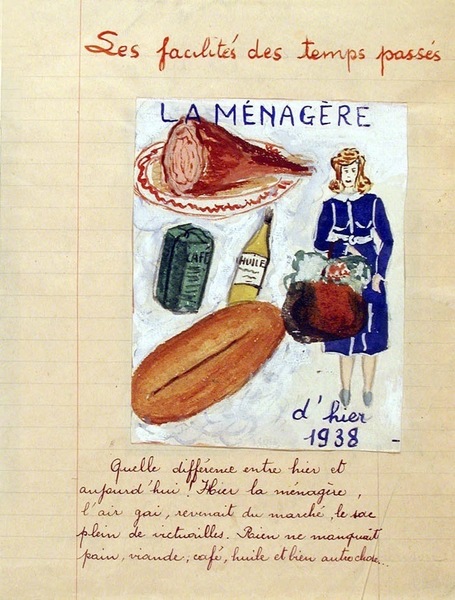 Les facilités des temps passés
LA MÉNAGÈRE
CAFÉ
HUILE
d'hier
1938
Quelle différence entre hier et
aujourd'hui ! Hier la ménagère,
l'air gai, revenait du marché, le sac
plein de victuailles. Rien ne manquait
pain, viande, café, huile et bien autre chose...